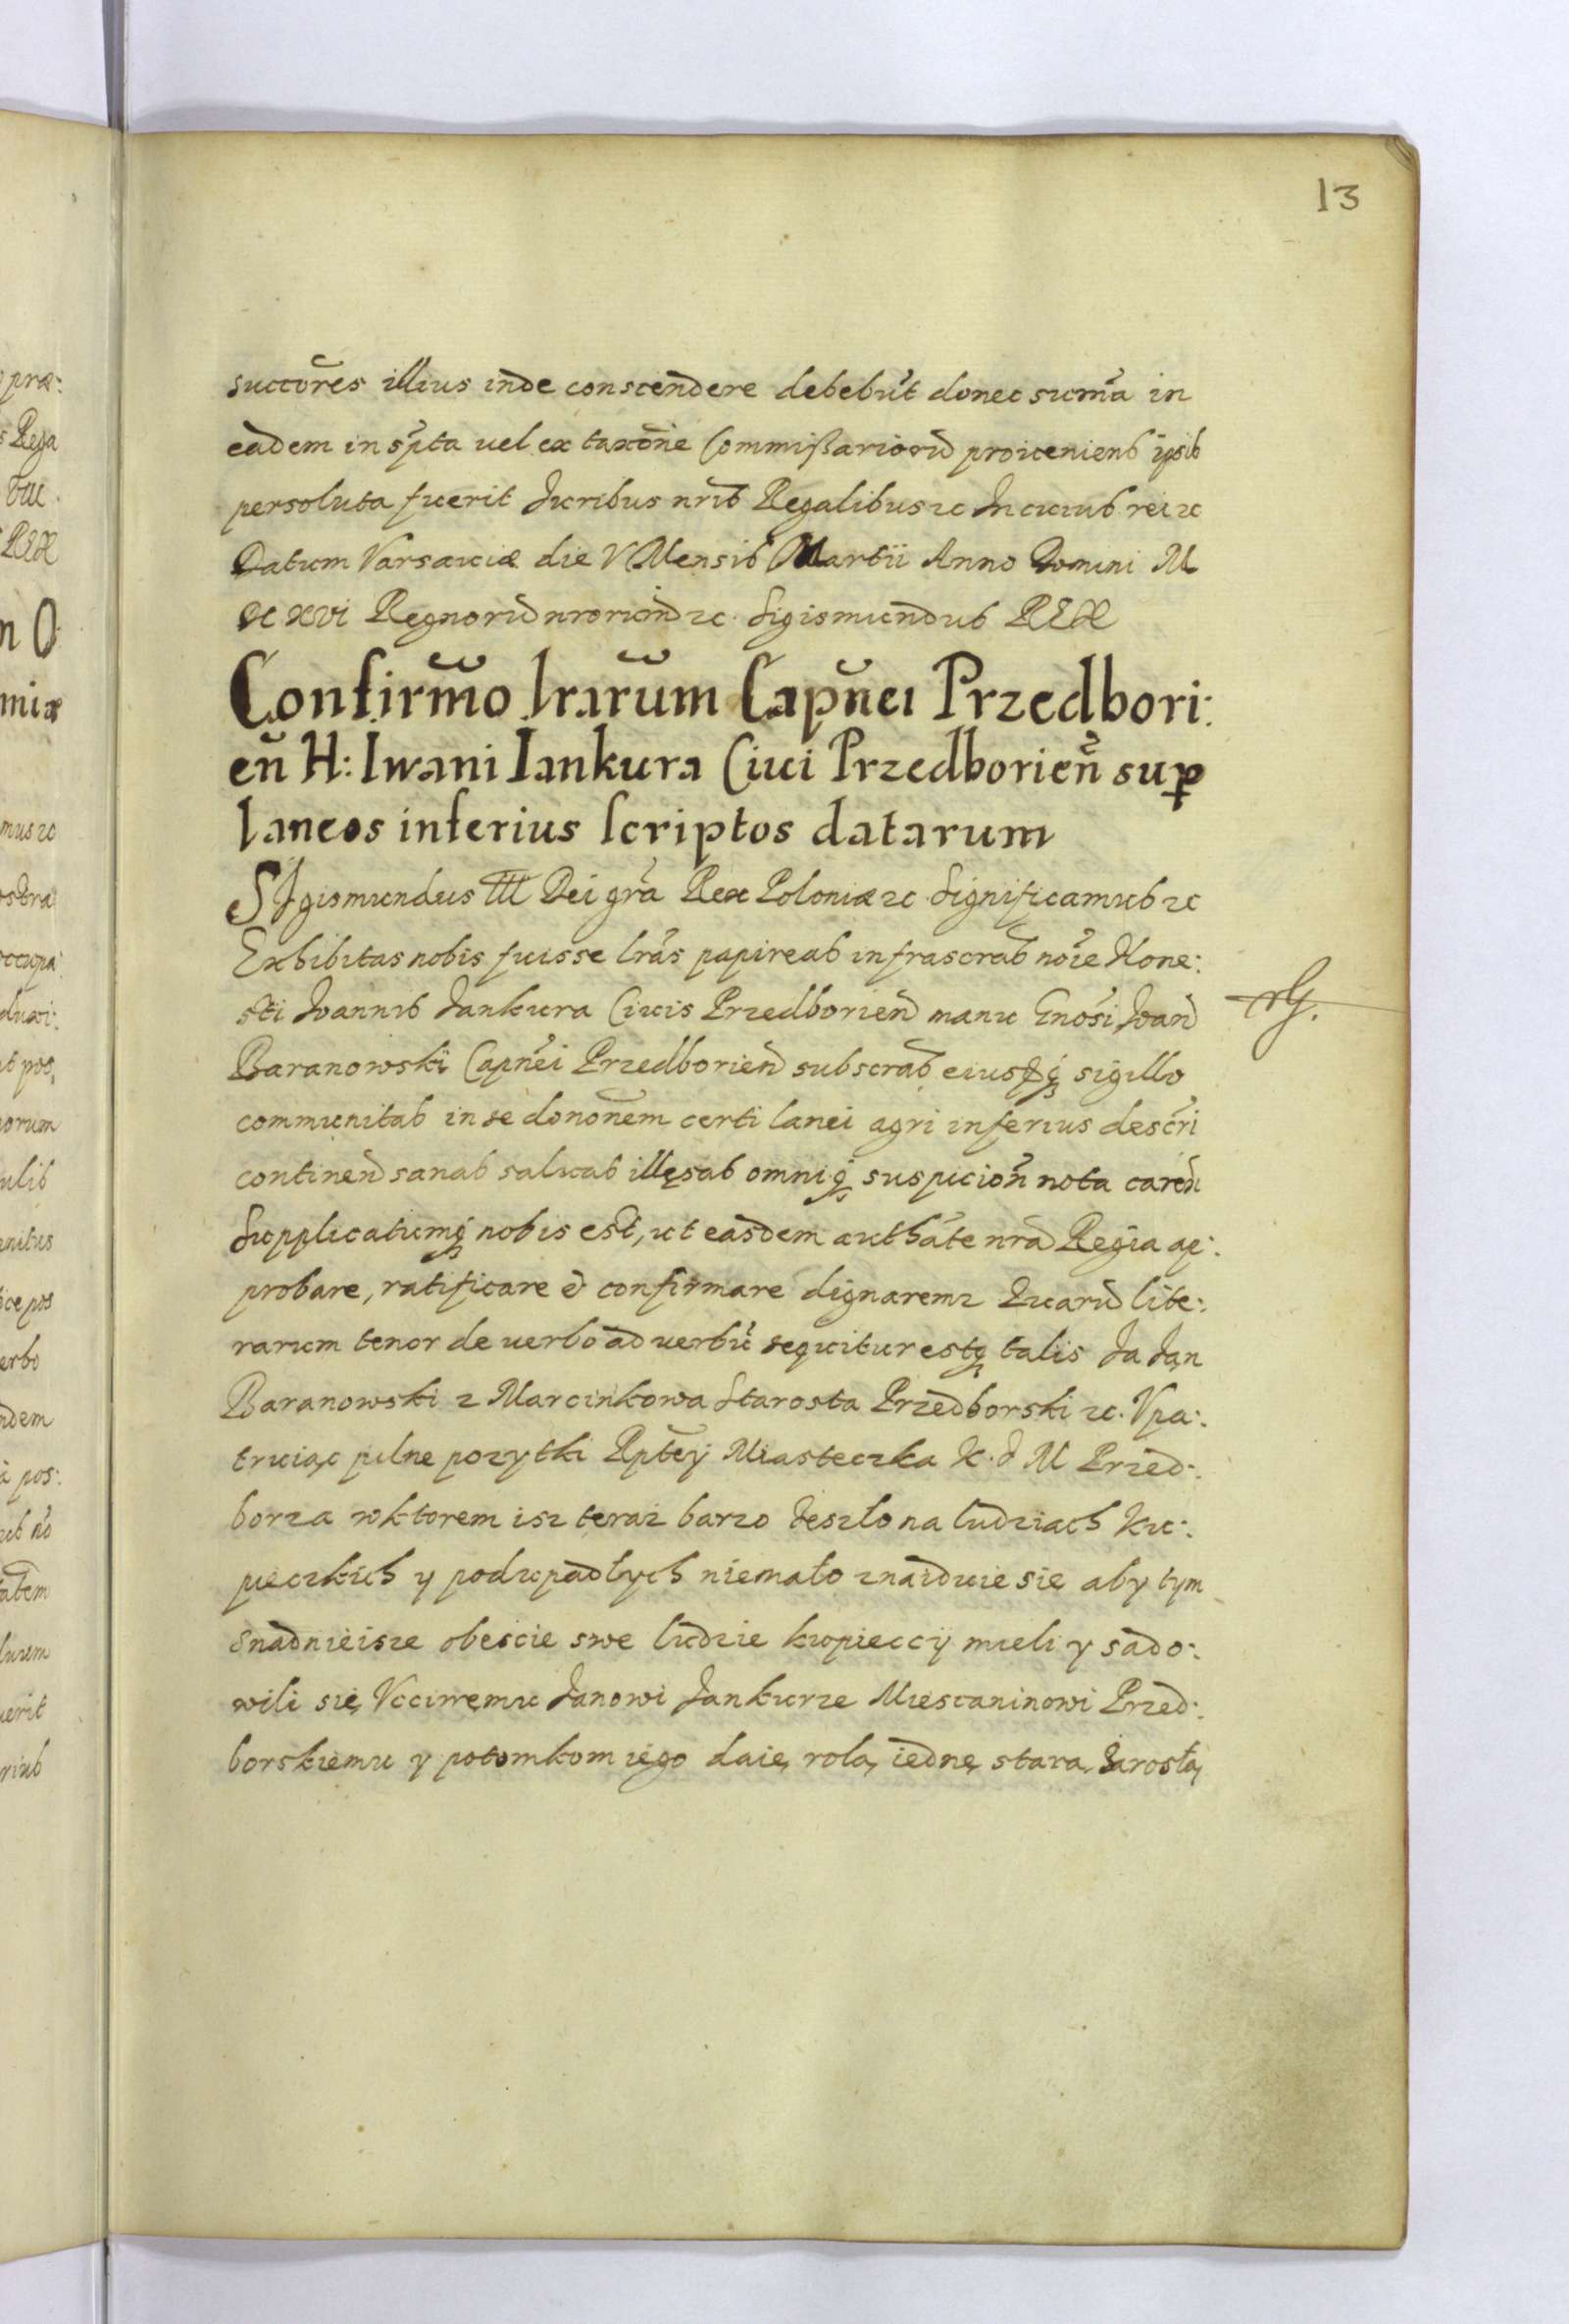 13
succōres illius inde conscendere debebūt donec sum̄a in
eadem in sp̄ta uel ex taxōne Commißariorū proueniens ipsis
persoluta fuerit Iuribus nr̄is Regalibus ꝛc In cuius rei ꝛc
Datum Varsauiæ die V Mensis Martii Anno Domini M
DC XVI Regnorū nrorum ꝛc. Sigismundus REX
Confirm̄o lrarūm Capn̄ei Przedbori:
en̄ H: Iwani Iankura Ciui Przedborien̄ suꝑ
laneos inferius scriptos datarum
SIgismundus III Dei gr̄a Rex Poloniæ ꝛc Significamus ꝛc
Exhibitas nobis fuisse lr̄as papireas infrascrās noīe Hone:
sti Ioannis Iankura Ciuis Przedborien̄ manu Gnōsi Ioan̄
Baranowskii Capn̄ei Przedborien̄ subscrās eiusꝗ sigillo
communitas in se donōnem certi lanei agri inferius descr̄i
continen̄ sanas saluas illęsas omniꝗ suspicion̄ nota caren̄
Supplicatumꝗ nobis est, ut easdem authāte nr̄a Regia ap:
probare, ratificare & confirmare dignaremr Quarū lite:
rarum tenor de uerbo ad uerbū sequitur estꝗ talis Ia Jan
Baranowski z Marcinkowa Starosta Przedborski ꝛc. Vpa:
truiąc pilne pozytki Rptey Miasteczka K. J M Przed:
borza wktorem isz teraz barzo zeszło na ludziach ku:
pieczkich y podupadłych niemało znaiduie się aby tym
snadnieisze obescie swe ludzie kupieccy mieli y sado:
wili się, Vcciwemu Janowi Jankurze Miescaninowi Przed:
borskiemu y potomkom iego daię rolą iednę starą Zarosłą